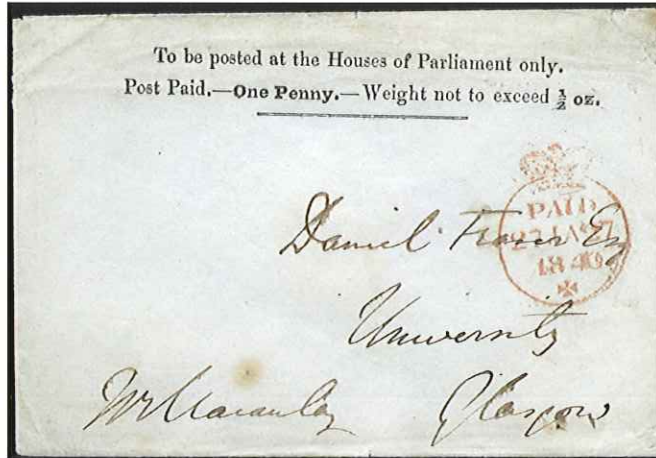 To be posted at the Houses of Parliament only.
Post Paid.—One Penny.—Weight not to exceed ½ oz.
PAID
27 JA 27
1840
Daniel Fraser Esq
University
Glasgow
Mr Macaulay